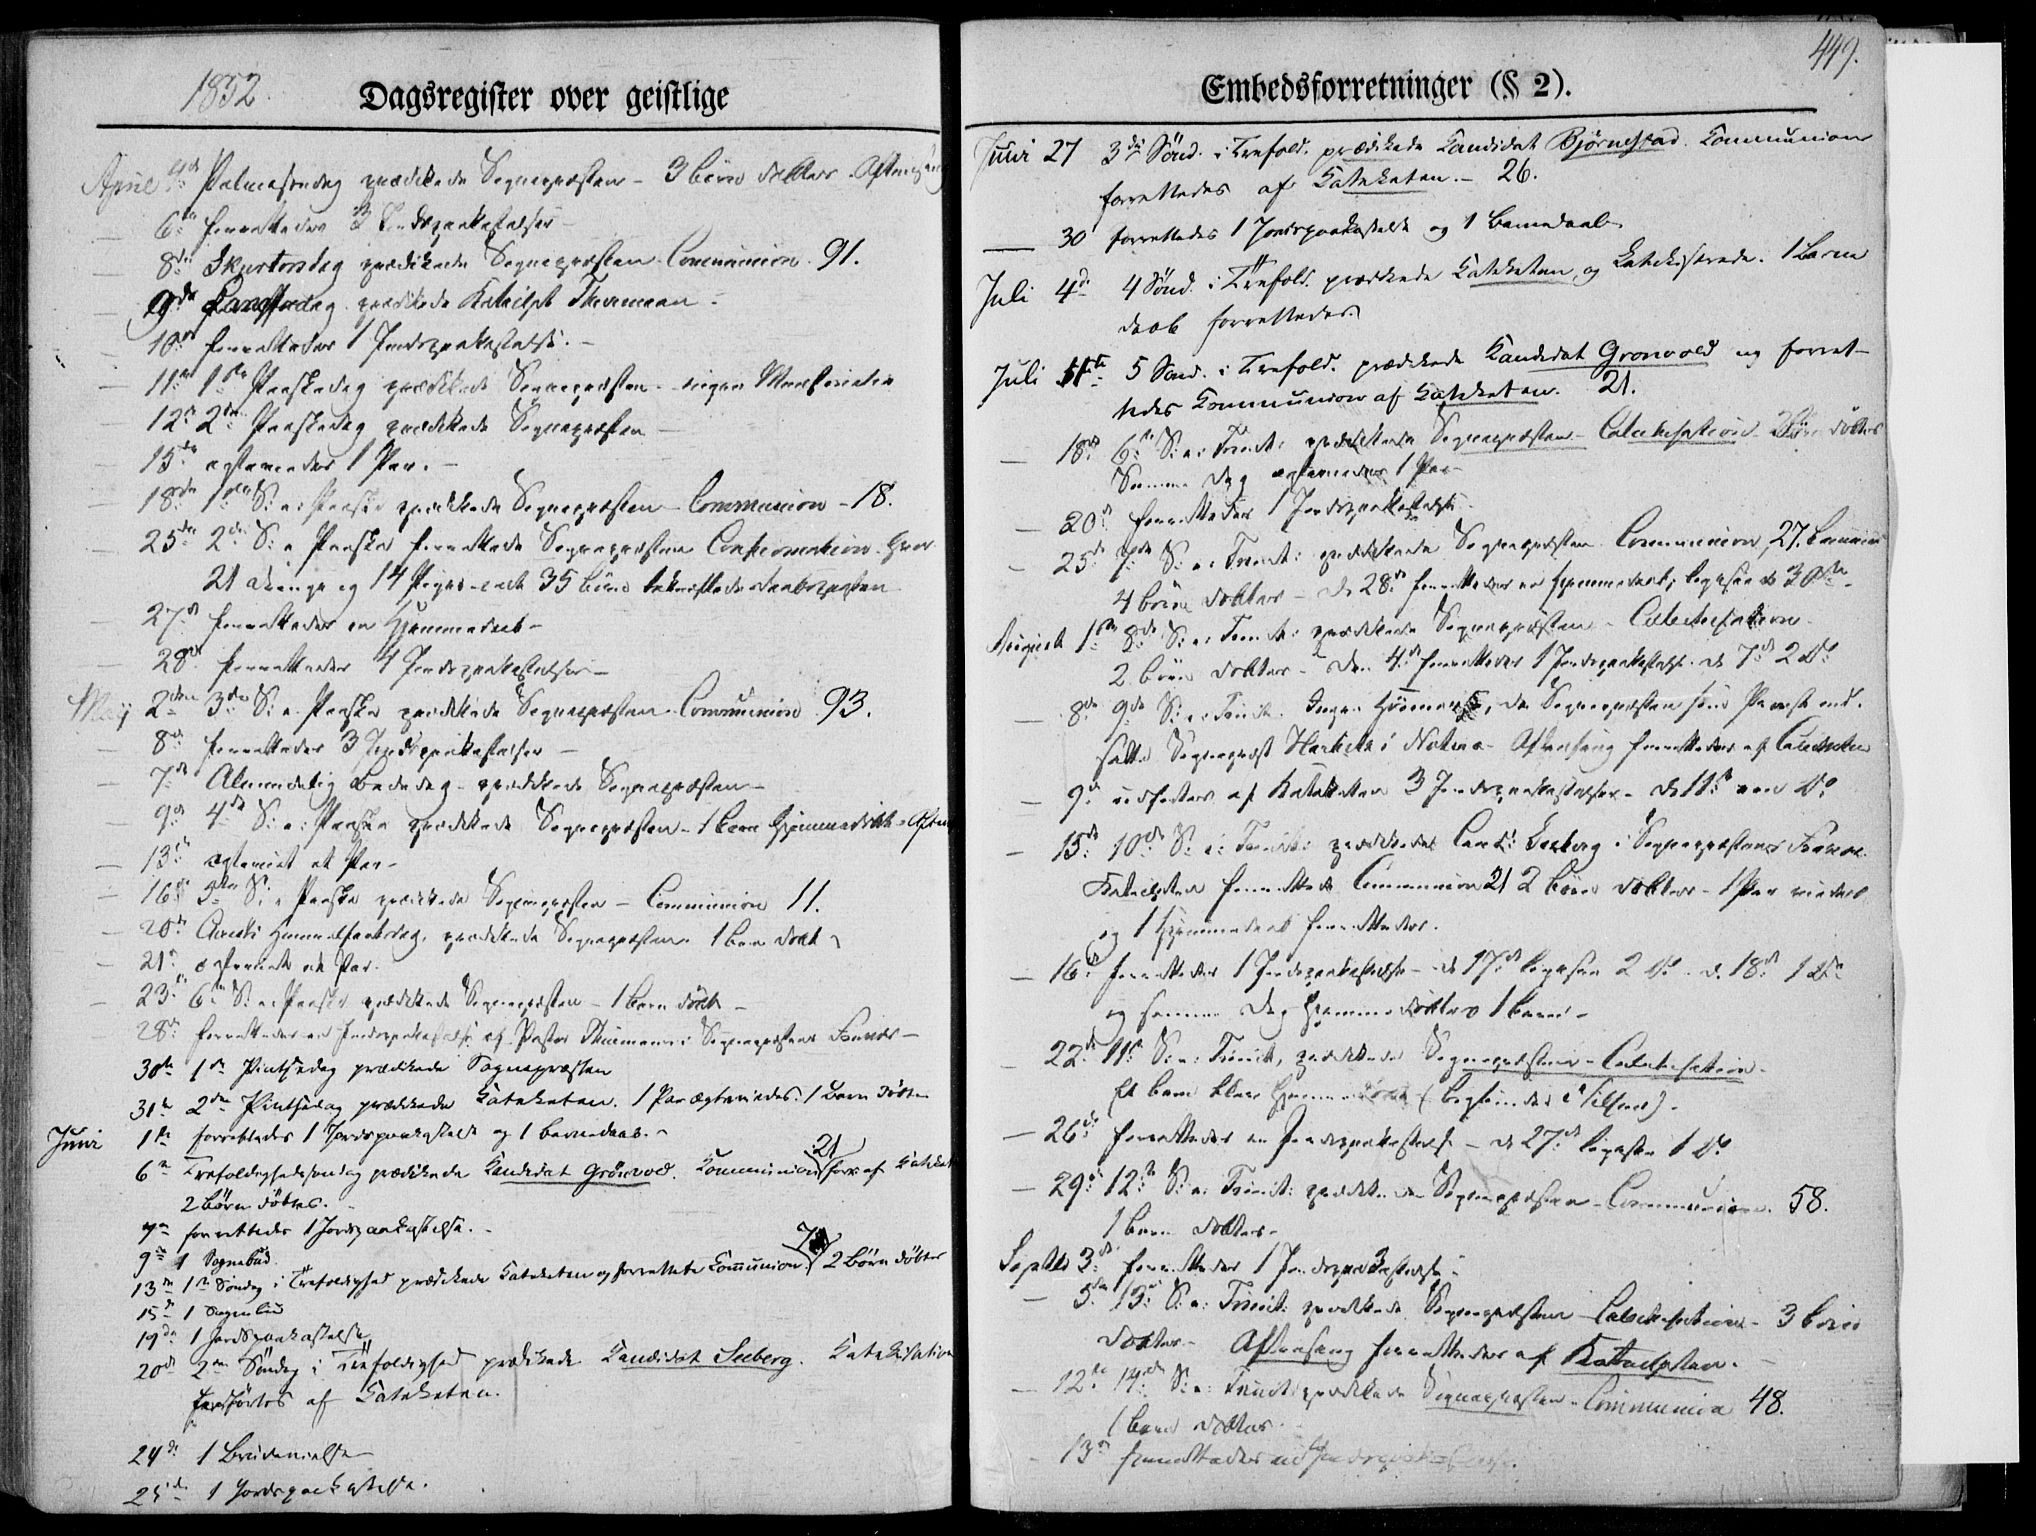 1852
Dagsregister over geistlige
April 4de Palmesøndag prædikede Sognepræsten – 3 børn døbtes. Aftensang
6te forrettedes 3 Jordspaakastelser –
8de Skjertorsdag prædikede Sognepræsten. Communion. 91.
9de Langfredag prædikede Katechet Thurmann –
10de forrettedes 1 Jordspaakastelse. –
11te 1ste Paaskedag prædikede Sognepræsten – ingen
12te 2den Paaskedag prædikede Sognepræsten –
15de ægteviedes 1 Par. –
18de 1ste S. e. Paaske prædikede Sognepræsten – Communion – 18.
25de 2den S. e. Paaske forrettede Sognepræsten Confirmation.
21 drenge og 14 Piger – 35 børn
27de forrettedes en Hjemmedaab –
28de forrettedes 4 Jordspaakastelser –
May 2den 3die S. e. Paaske prædikede Sognepræsten. Communion 93.
8de forrettedes 3 Jordspaakastelser –
7de Almindelig Bededag – prædikede Sognepræsten –
9de 4de S. e. Paaske prædikede Sognepræsten – 1 barn
13de ægteviet et Par –
16de 5te S. e. Paaske prædikede Sognepræsten – Communion 11.
20de Christi Himmelfartsdag, prædikede Sognepræsten. 1 barn døbt
21de ægteviet et Par.
23de 6te S. e. Paaske prædikede Sognepræsten – 1 barn døbt –
28de forrettedes en Jordspaakastelse af Pastor Thurmann i Sognepræstens Fravær –
30te 1ste Pintsedag prædikede Sognepræsten
31te 2den Pintsedag prædikede Kateketen. 1 Par ægteviedes. 1 Barn døbt
Juni 1ste forrettedes 1 Jordspaakastelse og 1 barnedaab. –
21
6te Trefoldighedssøndag prædikede Kandidat Grönvold. Kommunion forr. af Kateket
2 börn döbtes. –
7de forrettedes 1 Jordspaakastelse. –
9de 1 Sognebud.
7
13de 1ste Søndag i Trefoldighed prædikede Kateketen og forrettede Communion 2 Börn döbtes
15de 1 Sognebud
19de 1 Jordspaakastelse
20de 2den Søndag i Trefoldighed prædikede Kandidat Seeberg. Katekisation
af Kateketen.
24de 1 Brudevielse
25de 1 Jordspaakastelse.
449.
Embedsforretninger (§ 2).
Juni 27 3die Sönd. i Trefold. prædikede Kandidat Björnestad. Kommunion
forrettedes af Kateketen. – 26.
— 30 forrettedes 1 Jordspaakastelse og 1 Barnedaab
Juli 4de 4 Sönd. i Trefold. prædikede Kateketen og katekiserede. 1 barne
daab forrettedes.
Juli 11te 5 Sönd. i Trefold. prædikede Kandidat Gronvold og forret-
tedes Kommunion af Kateketen. 21.
— 18de 6te S. e. Trinit. prædikede Sognepræsten – Catechisation – 2 Börn döbtes
Samme Dag ægteviedes 1 Par –
— 20de forrettedes 1 Jordspaakastelse
— 25de 7de S. e. Trinit. prædikede Sognepræsten Communion, 27.
4 børn døbtes – d. 28de forrettedes en Hjemmedaab, ligesaa d. 30te
August 1ste 8de S. e. Trinit. prædikede Sognepræsten – Catechisation.
2 børn døbtes – den 4de forrettedes 1 Jordspaakastelse. d. 7de 2 do
— 8de 9de S. e. Trinit. Ingen, da Sognepræsten som Provst ind-
satte Sognepræst i Aftensang forrettedes af Catecheten
— 9de af Katecheten 3 Jordspaakastelser – d. 11te en do
— 15de 10de S. e. Trinit. prædikede Cand. Seeberg i Sognepræstens Fravær.
Katecheten forrettede Communion 21 2 børn døbtes – 1 Par viedes
og 1 Hjemmedaab forrettedes.
— 16de forrettedes 1 Jordspaakastelse – d. 17de ligesaa 2 do – d. 18de 1 do
og samme Dag hjemmedøbtes 1 barn –
— 22de 11te S. e. Trinit. prædikede Sognepræsten – Catechisation.
Et barn blev Hjemmedøbt
— 26de forrettedes en Jordspaakastelse – d. 27de ligesaa 1 do
— 29de 12te S. e. Trinit. prædikede Sognepræsten – Communion. 58.
1 barn døbtes –
Septbr 3de forrettedes 1 Jordspaakastelse –
— 5te 13de S. e. Trinit. prædikede Sognepræsten – Catechisation – 3 børn
døbtes – Aftensang forrettedes af Katecheten. –
— 12te 14de S. e. Trinit. prædikede Sognepræsten – Communion 48.
1 barn døbtes.
— 13de forrettedes en Jordspaakastelse.